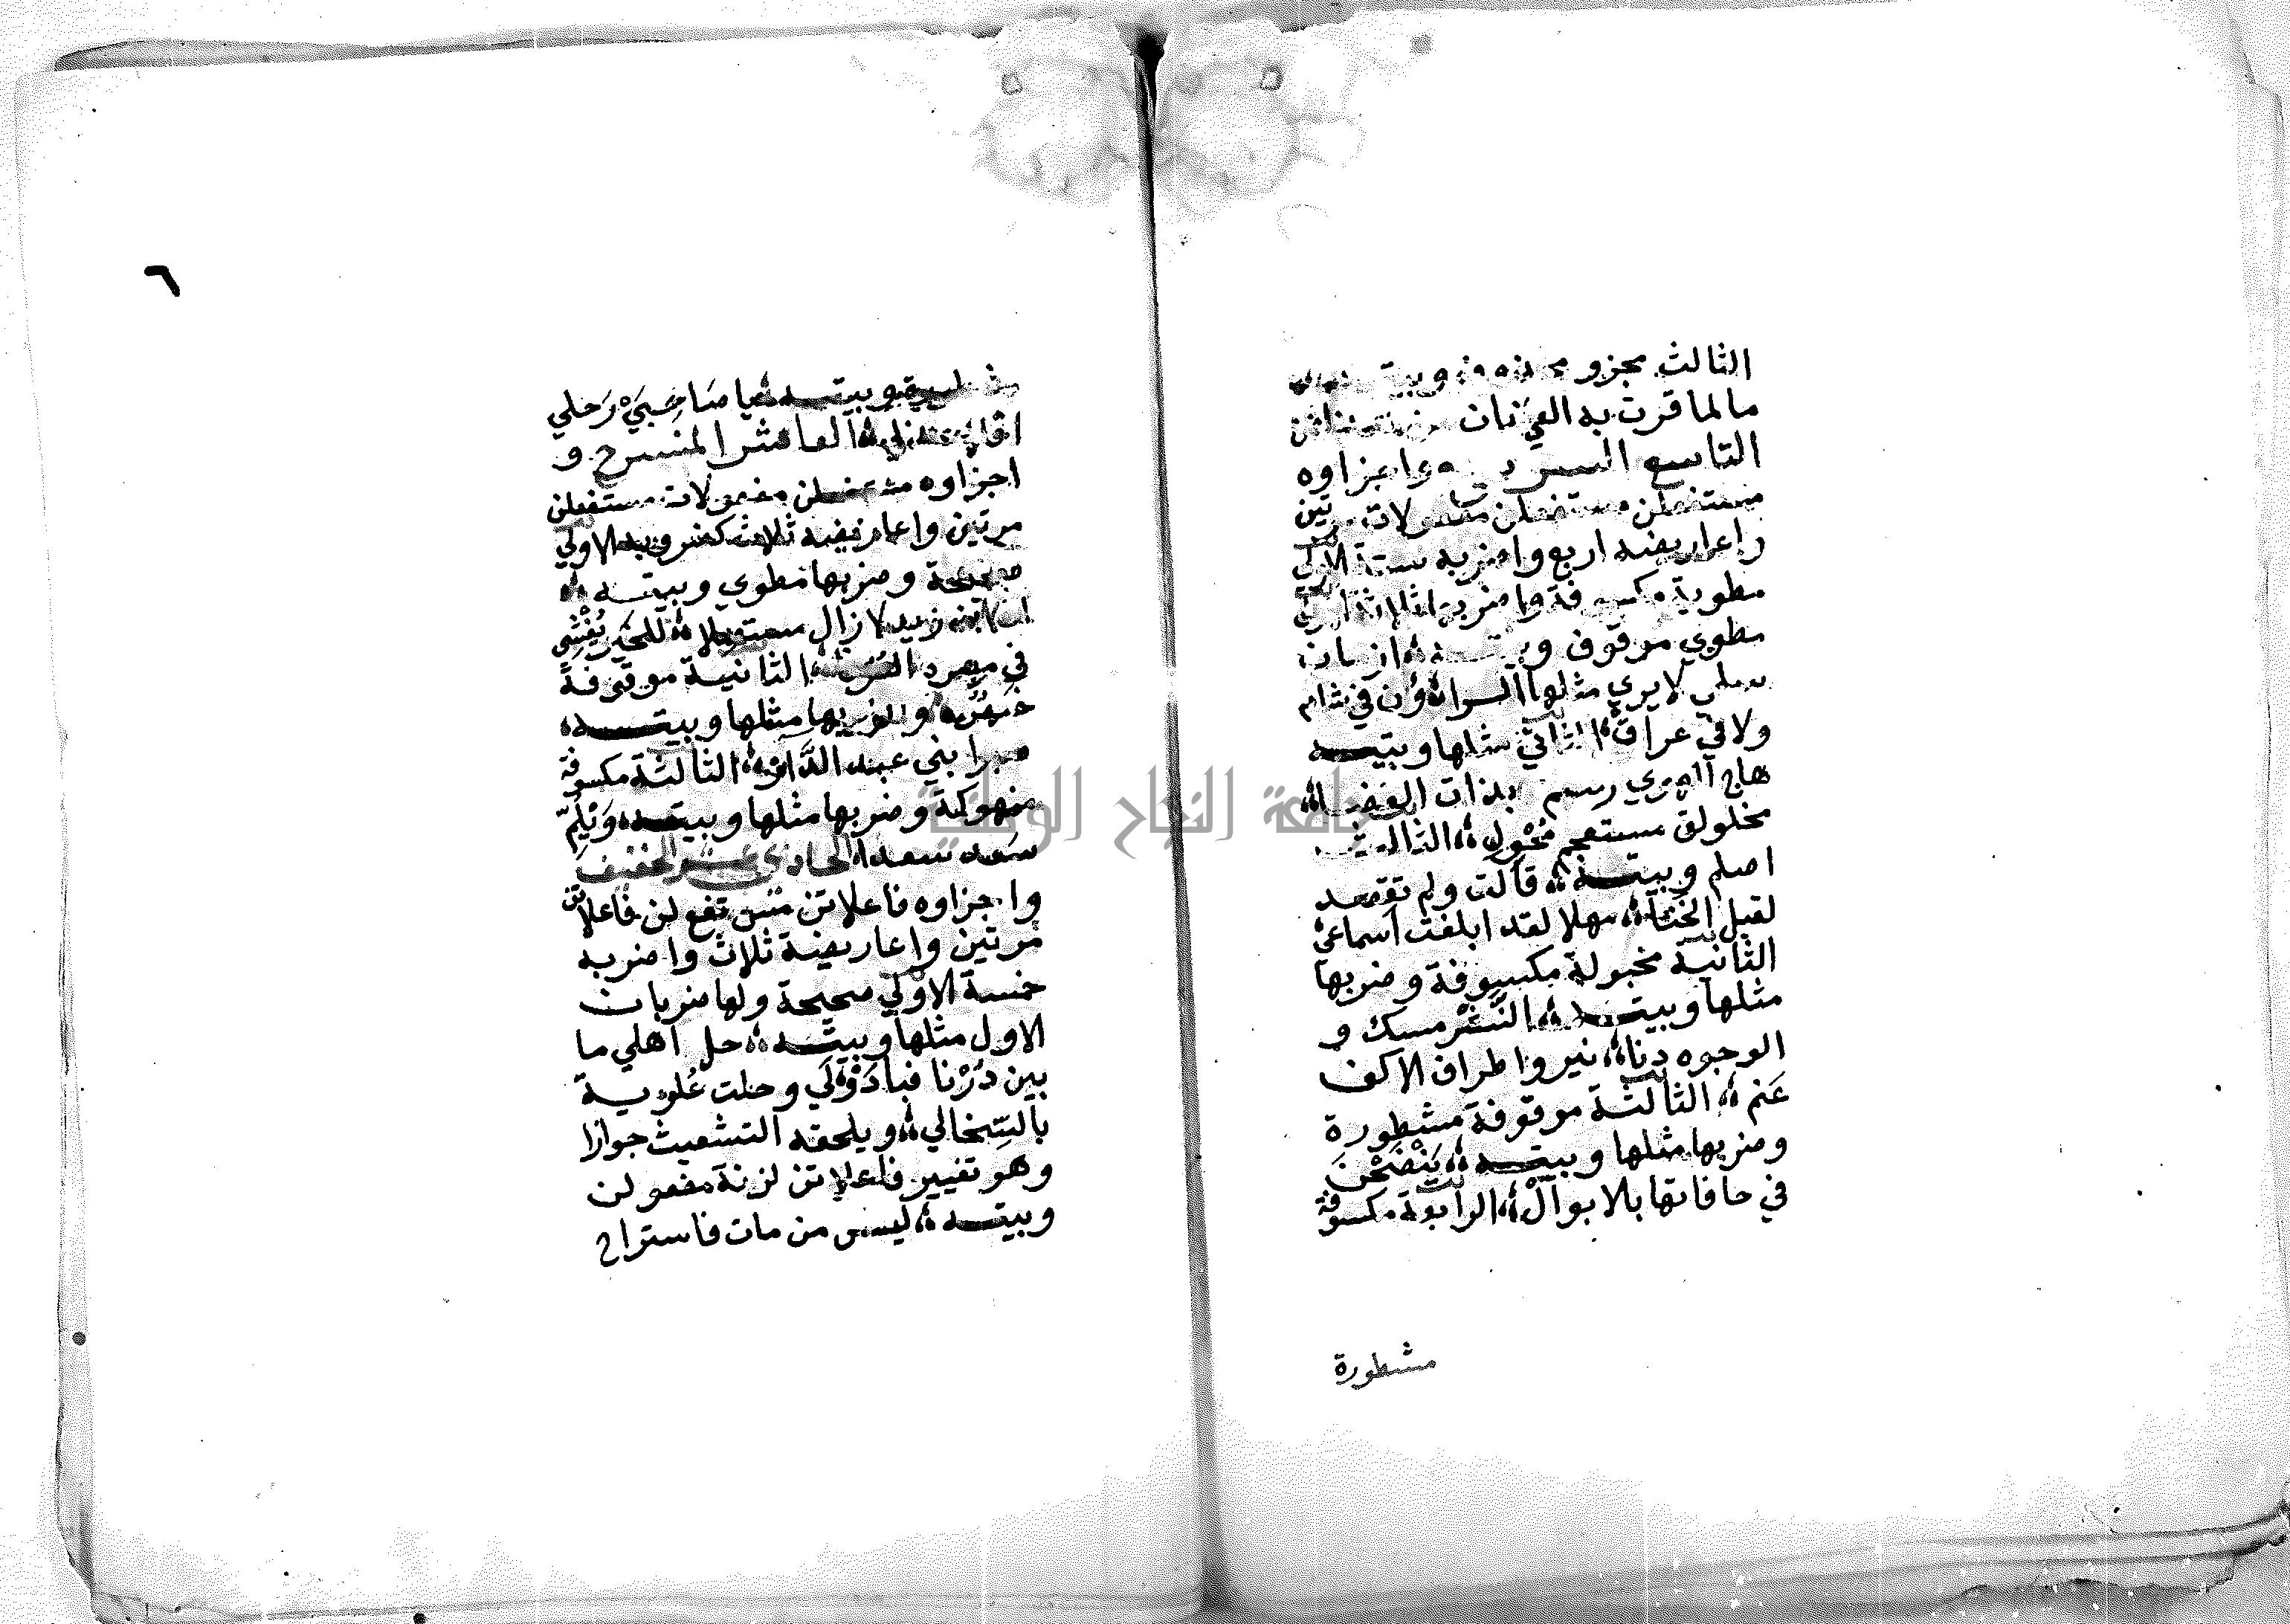 الثالث مجزو محذوف وبيته
مالما قرت به العينان من
التاسع السريع واجزاوه
مستفعلن مستفعلن مفعولات مرتين
واعاريضه اربع واضربه ستة الاولي
مطوية مكسوفة واضربها ثلاثة الاول
مطوي موقوف وبيته ازمان
سلمي لا يري مثلها الراؤن في شام
ولا في عراق الثاني مثلها وبيته
هاج الهوي رسم بذات الغضا
مخلولق مستعجم مُحْوِل الثالث
اصلم وبيته قالت ولم تقصد
لقيل الخنا مهلا لقد ابلغت اسماعي
الثانية مخبولة مكسوفة وضربها
مثلها وبيته النَّشْر مسك و
الوجوه دنانير واطراف الاكف
عَنم الثالثة موقوفة مشطورة
وضربها مثلها وبيته يَنْضَحْنَ
في حافاتها بالابوالْ الرابعة مكسوفة
مشطورة
٦
مشطورة وبيته يا صَاحِبَيْ رَحلي
اقلا عذلي العاشر المنسرح و
اجزاوه مستفعلن مفعولات مستفعلن
مرتين واعاريضه ثلاث كضروبه الاولي
صحيحة وضربها مطوي وبيته
ان ابن زيد لا زال مستعملا للخير يُفْشِي
في مصره العُرُفا الثانية موقوفة
منهوكة وضربها مثلها وبيته
صبرا بني عبد الدَّار الثالثة مكسوفة
منهوكة وضربها مثلها وبيته وَيْلُمِّ
سَعد سعدا الحادي عشر الخفيف
واجزاوه فاعلاتن مستفع لن فاعلاتن
مرتين واعاريضه ثلاث واضربه
خمسة الاولي صحيحة ولها ضربان
الاول مثلها وبيته حل اهلي ما
بين دُرْنا فبادَوْلَي وحلت عُلوية
بالسِّخالي ويلحقه التشعيث جوازا
وهو تغيير فاعلاتن لزنة مفعولن
وبيته ليس من مات فاستراح
جامعة النجاح الوطنية